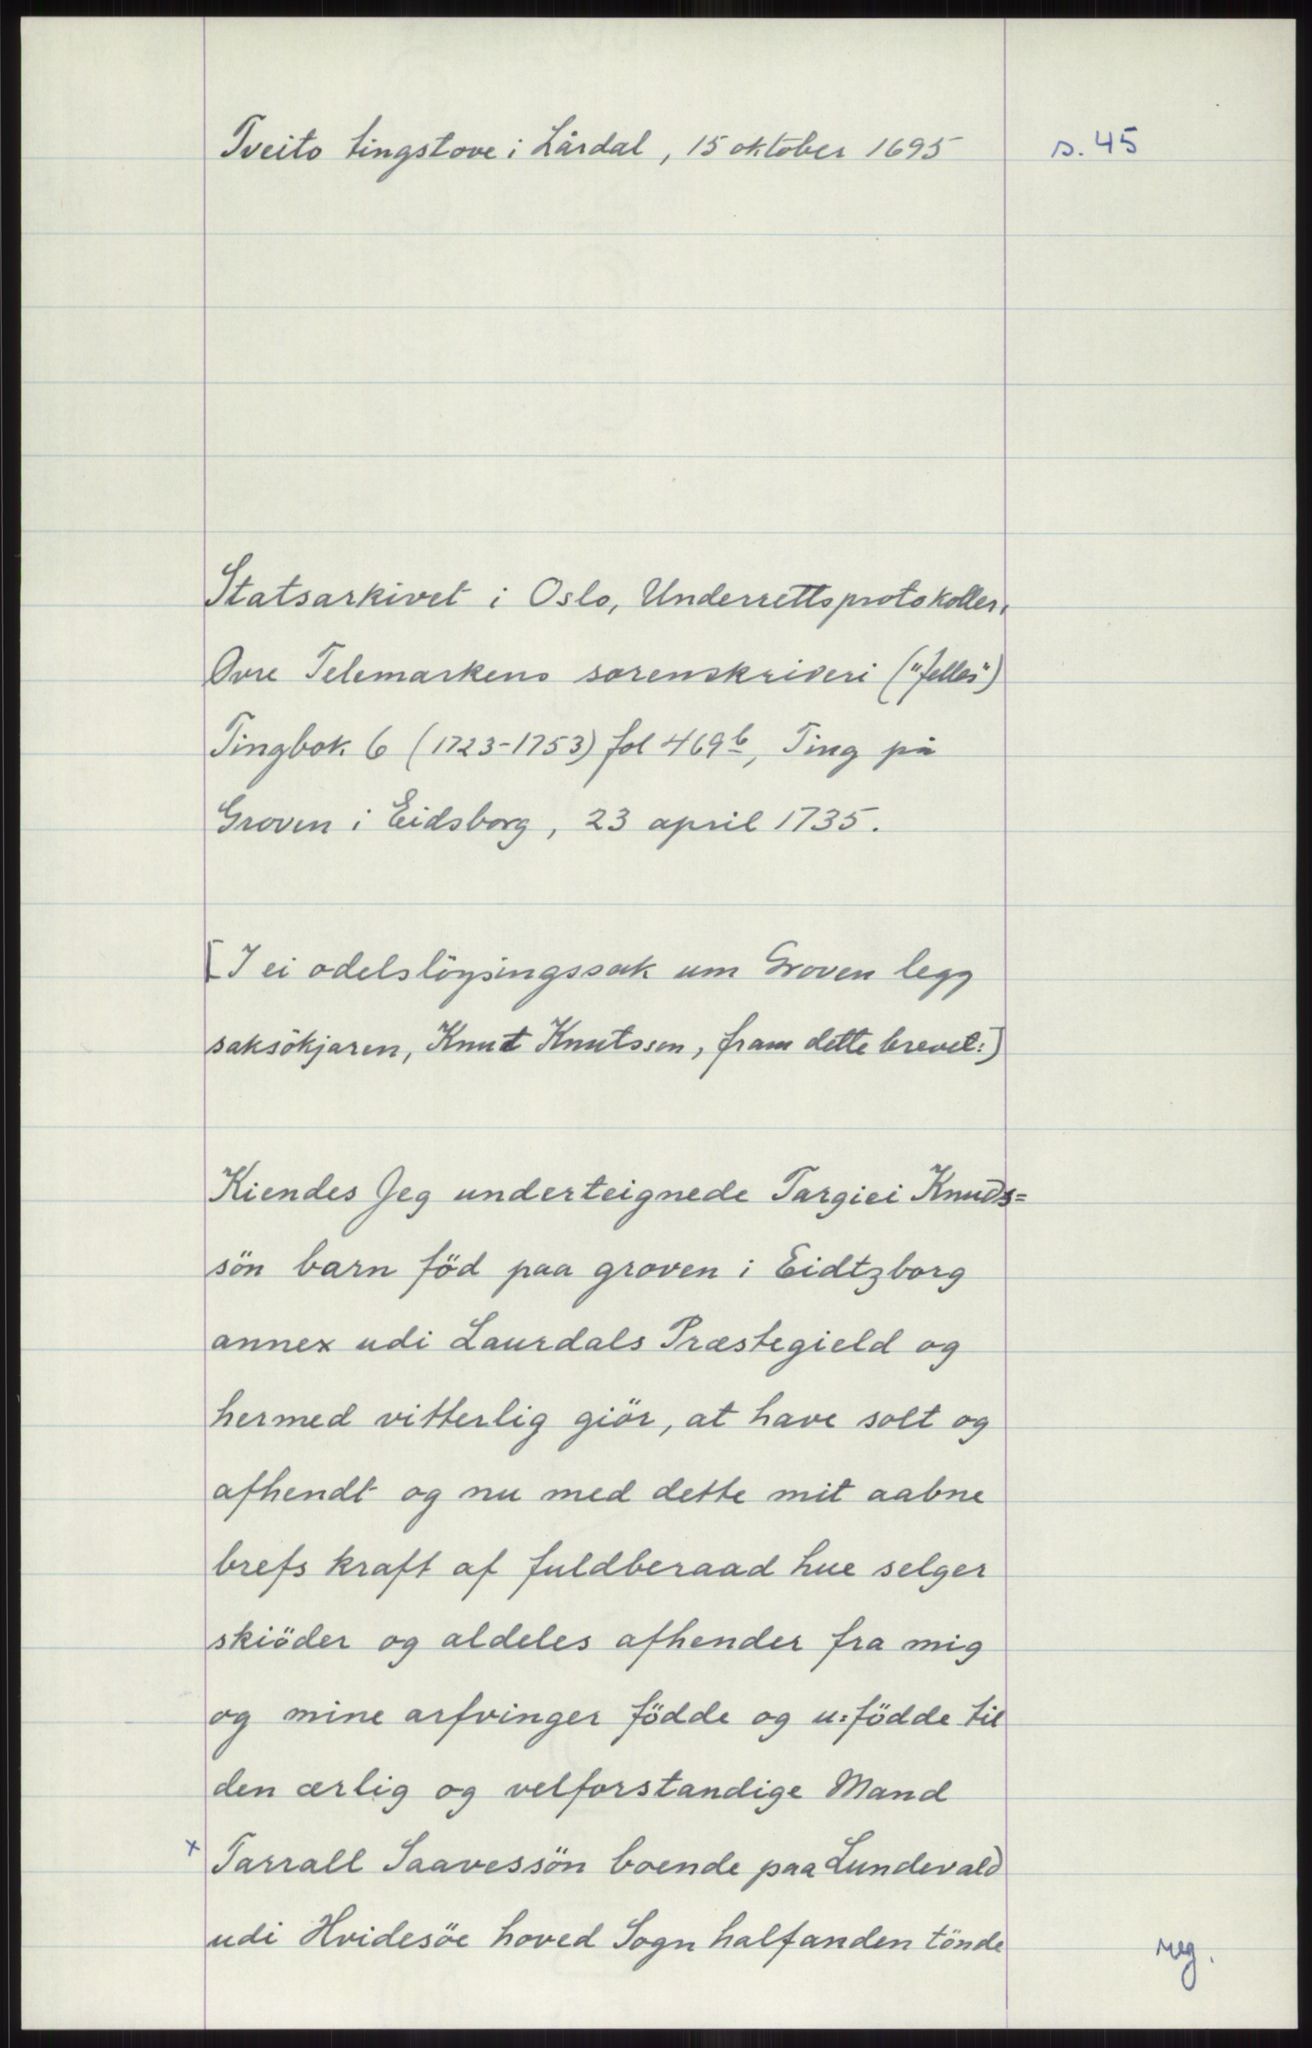 Tveito tingstove i Lårdal, 15 oktober 1695 s. 45
Statsarkivet i Oslo, Underrettsprotokoller,
Øvre Telemarkens sorenskriveri ("felles")
Tingbok 6 (1723-1753) fol 469b, Ting på
Groven i Eidsborg, 23 april 1735.
[I ei odelslöysingssak um Groven legg
saksökjaren, Knut Knutsson, fram dette brevet:]
Kiendes Jeg underteignede Targiei Knuds=
sön barn föd paa groven i Eidtzborg
annex udi Laurdals Præstegield og
hermed vitterlig giör, at have solt og
afhendt og nu med dette mit aabne
brefs kraft af fuldberaad hue selger
skiöder og aldeles afhender fra mig
og mine arfvinger födde og u=födde til
den ærlig og velforstandige Mand
x Tarrall Saavessön boende paa Lundevald
udi Hvidesöe hoved Sogn halfanden tönde
reg.